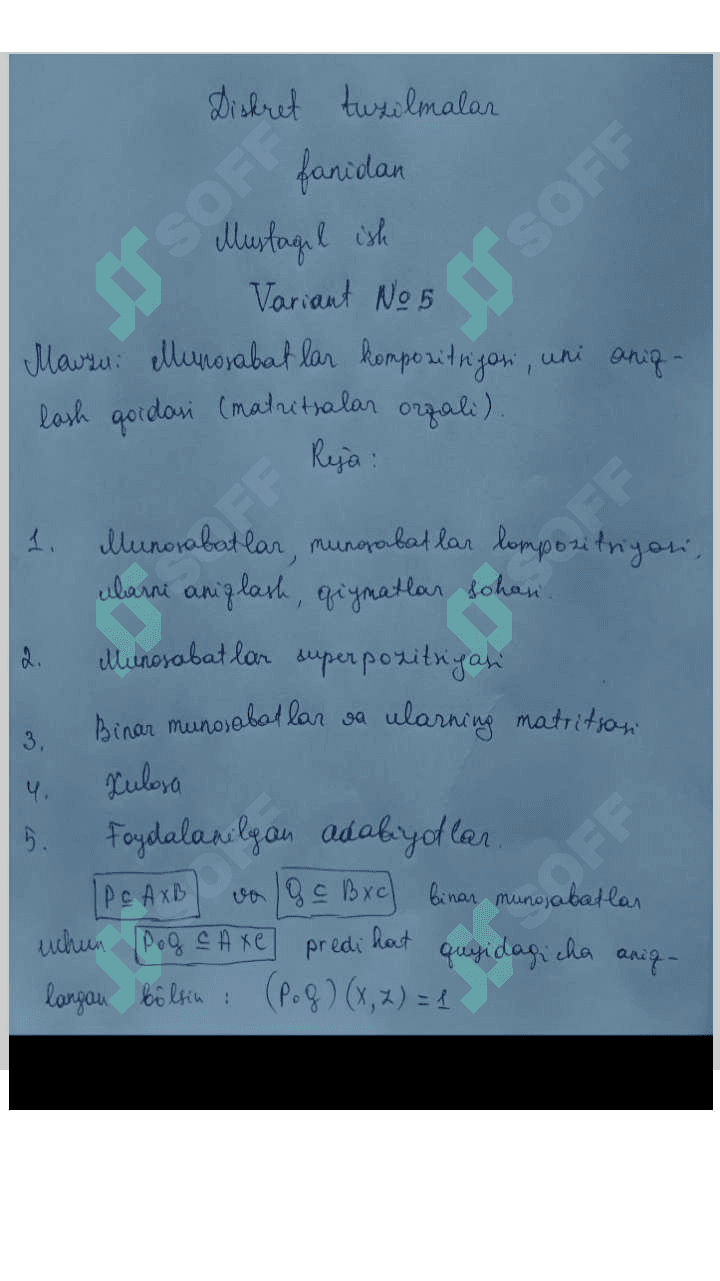 Diskret tuzilmalar
fanidan
Mustaqil ish
Variant № 5
Mavzu: Munosabatlar kompozitsiyasi, uni aniq-
lash qoidasi (matritsalar orqali).
Reja:
1. Munosabatlar, munosabatlar kompozitsiyasi,
ularni aniqlash, qiymatlar sohasi.
2. Munosabatlar superpozitsiyasi
3. Binar munosabatlar va ularning matritsasi
4. Xulosa
5. Foydalanilgan adabiyotlar.
P ⊆ A×B va g ⊆ B×C binar munosabatlar
uchun P∘g ⊆ A×C predikat quyidagicha aniq-
langan bôlsin: (P∘g)(x,z) = 1
SOFF
SOFF
SOFF
SOFF
SOFF
SOFF